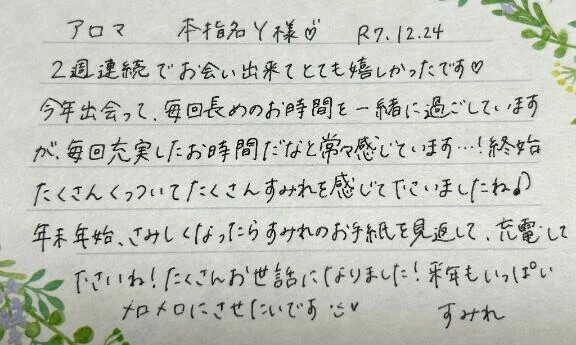 アロマ 本指名Y様♡ R7.12.24
2週連続でお会い出来てとても嬉しかったです♡
今年出会って、毎回長めのお時間を一緒に過ごしています
が、毎回充実したお時間だなと常々感じています…!終始
たくさんくっついてたくさんすみれを感じて下さいましたね♪
年末年始、さみしくなったらすみれのお手紙を見返して、充電して
下さいね!たくさんお世話になりました!来年もいっぱい
メロメロにさせたいです♡ すみれ